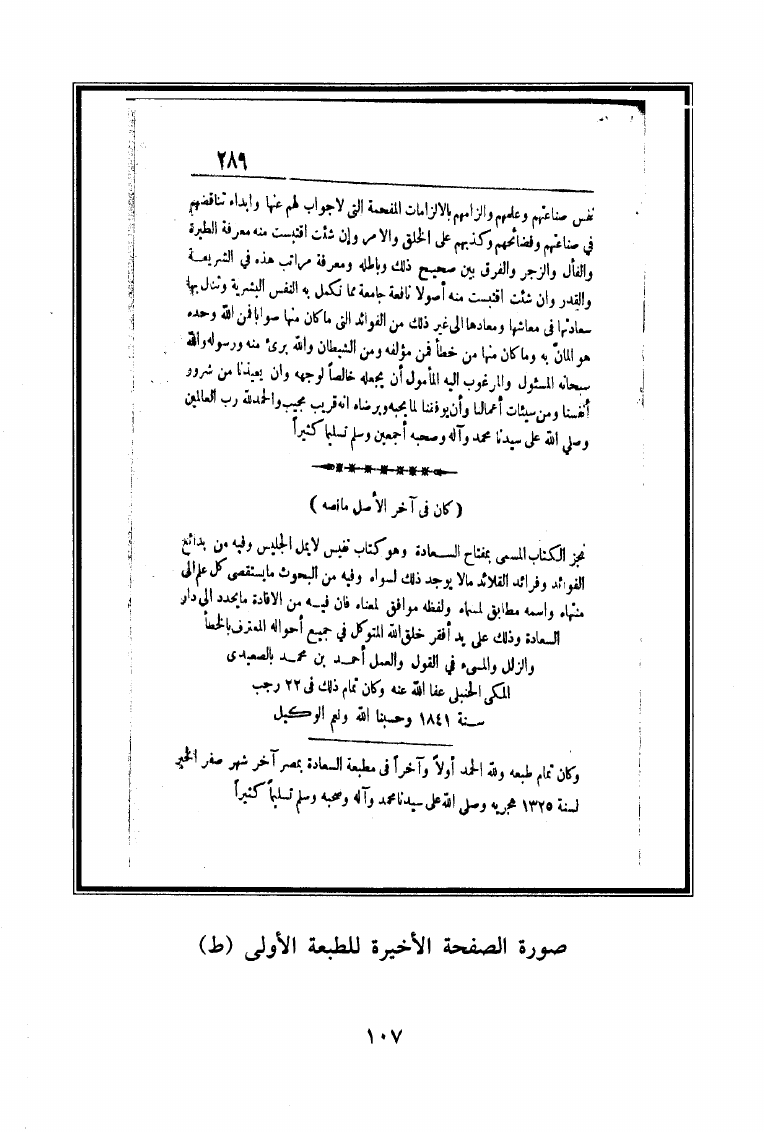 ٢٨٩
نفس صناعتهم وعلمهم والزامهم بالالزامات المفحمة التي لاجواب لهم عنها وابداء تناقضهم
في صناعتهم وفضائحهم وكذبهم على الخلق والامر وإن شئت اقتبست منه معرفة الطيرة
والفأل والزجر والفرق بين صحيح ذلك وباطله ومعرفة مراتب هذه في الشريعة
والقدر وان شئت اقتبست منه أصولا نافعة جامعة مما تكمل به النفس البشرية وتنال بها
سعادتها في معاشها ومعادها الى غير ذلك من الفوائد التي ما كان منها صوابا فمن الله وحده
هو المانّ به وما كان منها من خطأ فمن مؤلفه ومن الشيطان والله برئ منه ورسوله والله
سبحانه المسئول والمرغوب اليه المأمول أن يجعله خالصاً لوجهه وان يعيذنا من شرور
أنفسنا ومن سيئات أعمالنا وأن يوفقنا لما يحبه ويرضاه انه قريب مجيب والحمد لله رب العالمين
وصلي الله على سيدنا محمد وآله وصحبه أجمعين وسلم تسليما كثيراً
( كان في آخر الأصل مانصه )
نجز الكتاب المسمى بمفتاح السعادة وهو كتاب نفيس لايمل الجليس وفيه من بدائع
الفوائد وفرائد القلائد مالا يوجد ذلك لسواه وفيه من البحوث مايستقصى كل علم الى
منتهاه واسمه مطابق لمسماه ولفظه موافق لمعناه فان فيه من الافادة مايحدد الى دار
السعادة وذلك على يد أفقر خلق الله المتوكل في جميع أحواله المعترف بالخطأ
والزلل والمسيء في القول والعمل أحمد بن محمد بالصعيدى
المكى الحنبلى عفا الله عنه وكان تمام ذلك في ٢٢ رجب
سنة ١٨٤١ وحسبنا الله ونعم الوكيل
وكان تمام طبعه ولله الحمد أولاً وآخراً في مطبعة السعادة بمصر آخر شهر صفر الخير
لسنة ١٣٢٥ هجريه وصلي الله على سيدنا محمد وآله وصحبه وسلم تسليماً كثيراً
صورة الصفحة الأخيرة للطبعة الأولى (ط)
١٠٧